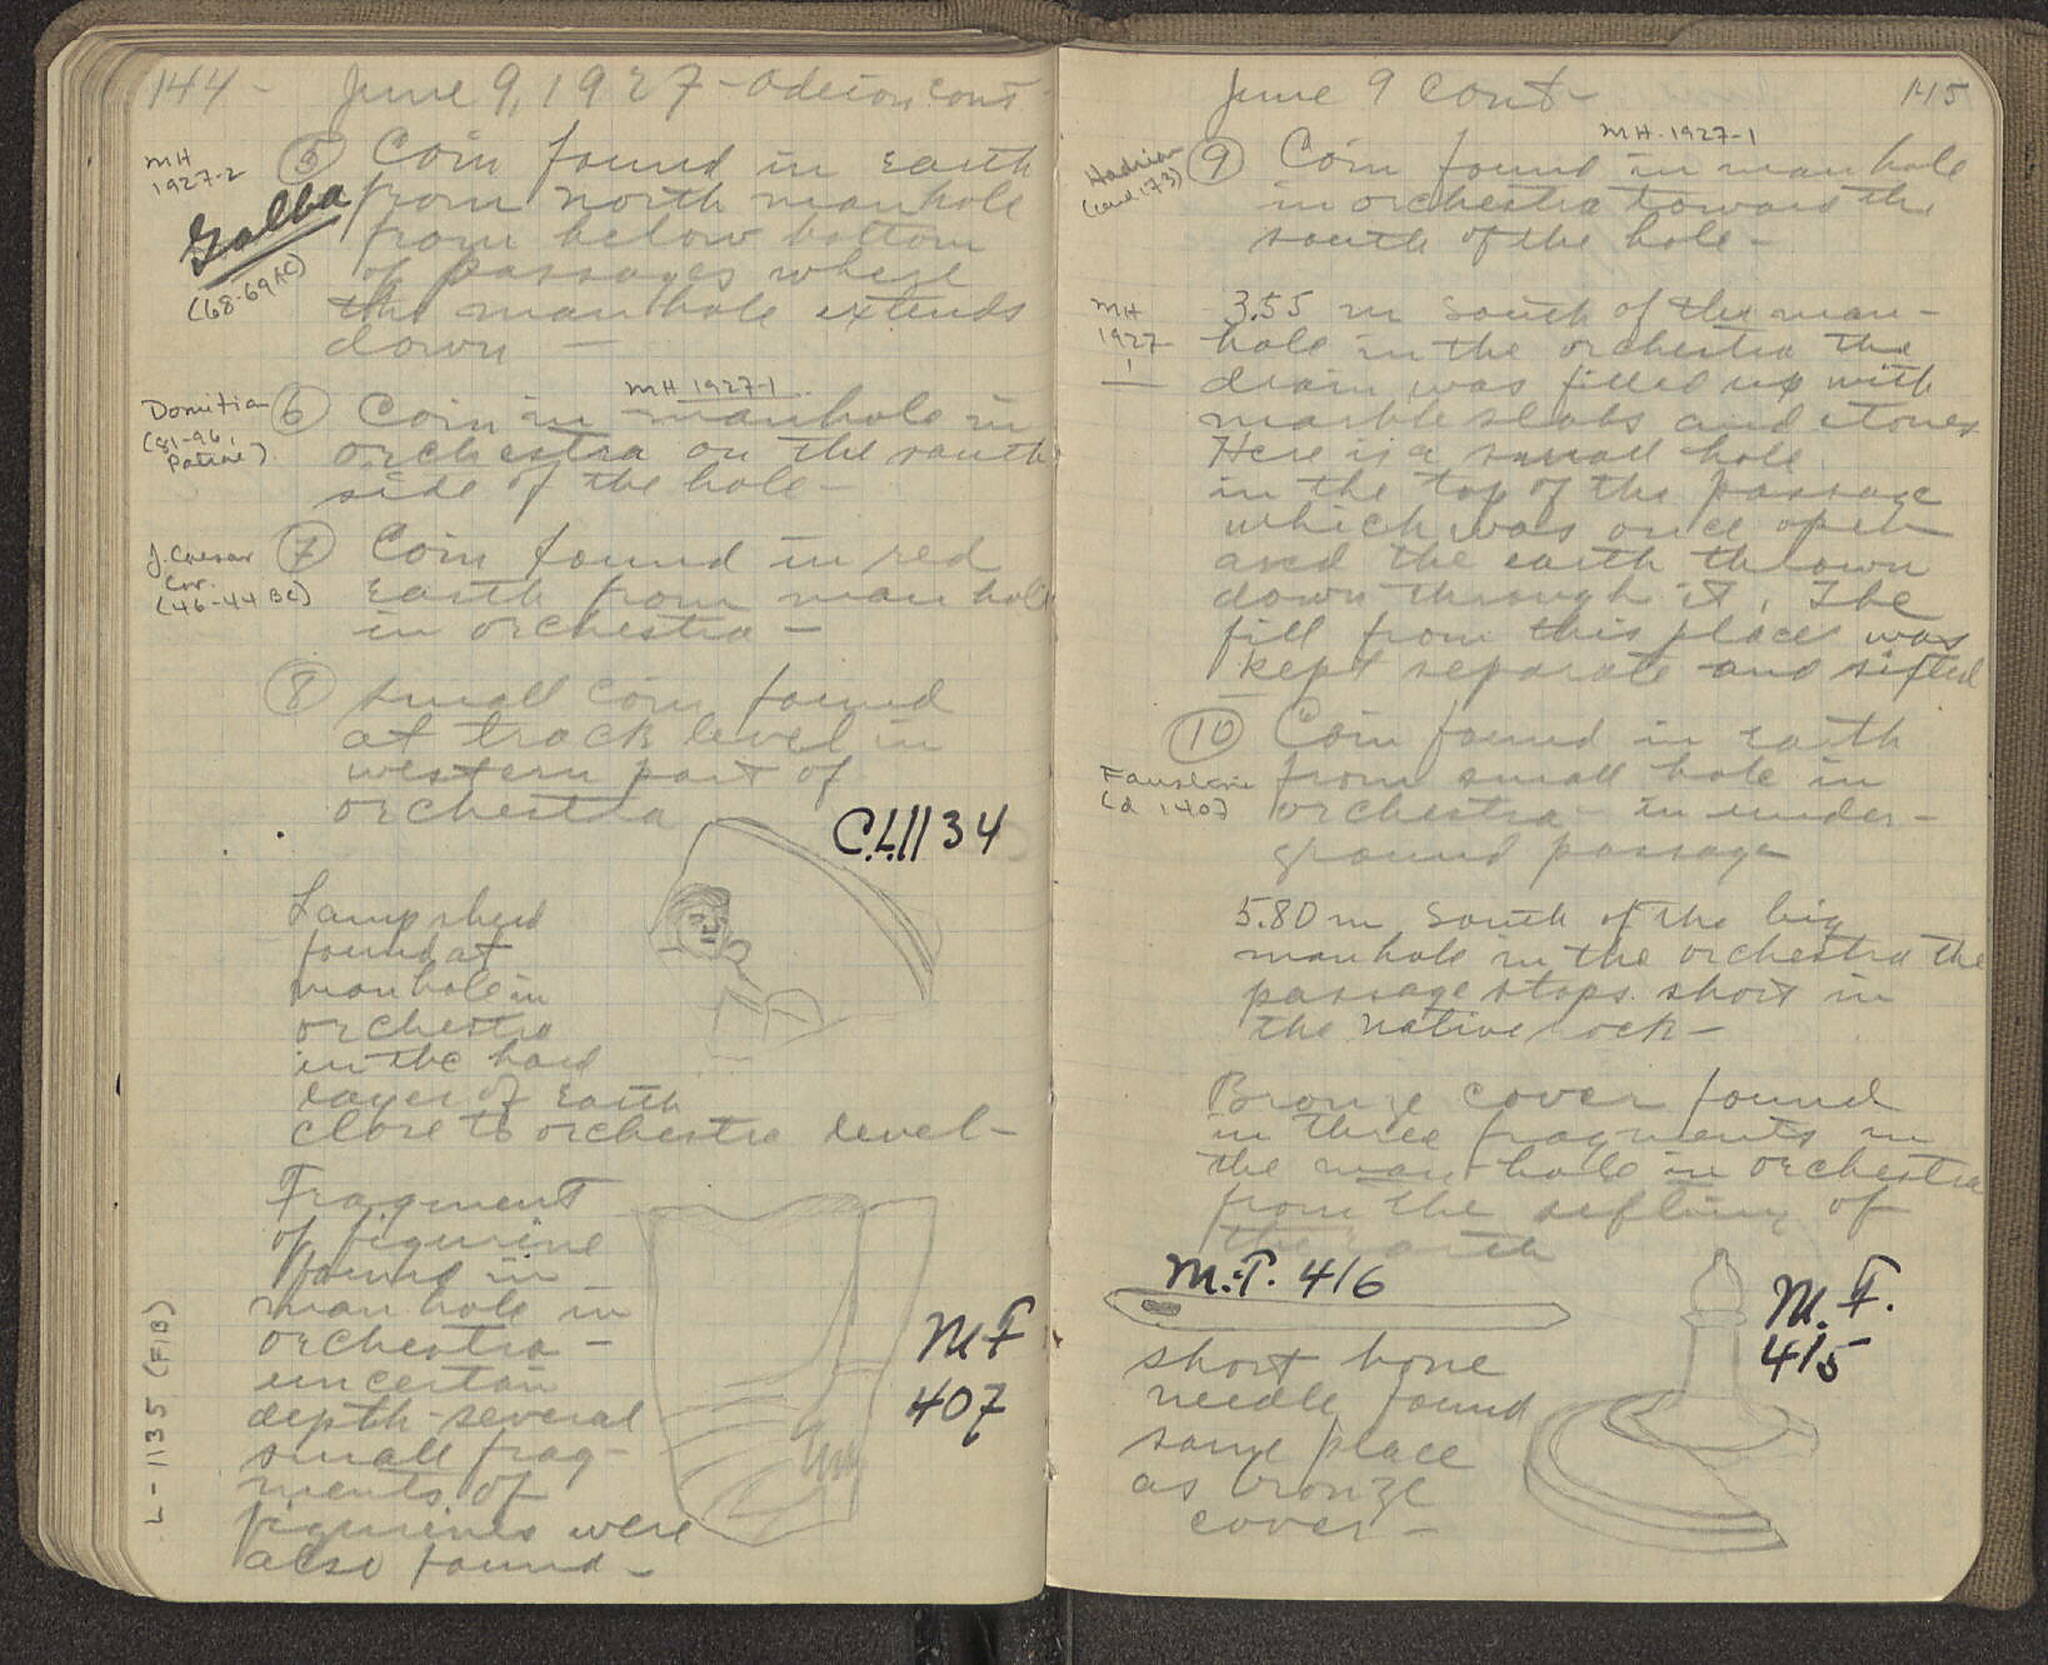 144 - June 9, 1927 - Odeion cont -
MH
1927-2
Galba
(68-69 AC)
⑤ Coin found in earth
from north manhole
from below bottom
of passages where
the manhole extends
down —
MH 1927-1
Domitian
(81-96,
Patrae)
⑥ Coin in manhole in
orchestra on the south
side of the hole —
J. Caesar
Cor.
(46-44 BC)
⑦ Coin found in red
earth from manhole
in orchestra —
⑧ small coin found
at track level in
western part of
orchestra
C.L.1134
Lamp sherd
found at
manhole in
orchestra
in the hard
layer of earth
close to orchestra level —
Fragment
of figurine
found in
manhole in
orchestra —
uncertain
depth - several
small frag-
ments of
figurines were
also found —
MF
407
L-1135 (FIB)
June 9 cont - 145
MH-1927-1
Hadrian
⑨ Coin found in manhole
in orchestra toward the
south of the hole —
MH
1927
1
3.55 m south of the man-
hole in the orchestra the
drain was filled up with
marble slabs and stones
Here is a small hole
in the top of the passage
which was once open
and the earth thrown
down through it. The
fill from this place was
kept separate and sifted
⑩ Coin found in earth
from small hole in
orchestra - in under-
ground passage
(d 140)
5.80 m south of the big
manhole in the orchestra the
passage stops short in
the native rock —
Bronze cover found
in three fragments in
the man-hole in orchestra
from the sifting of
the earth
M.F. 416
M.F.
415
short bone
needle found
same place
as bronze
cover —